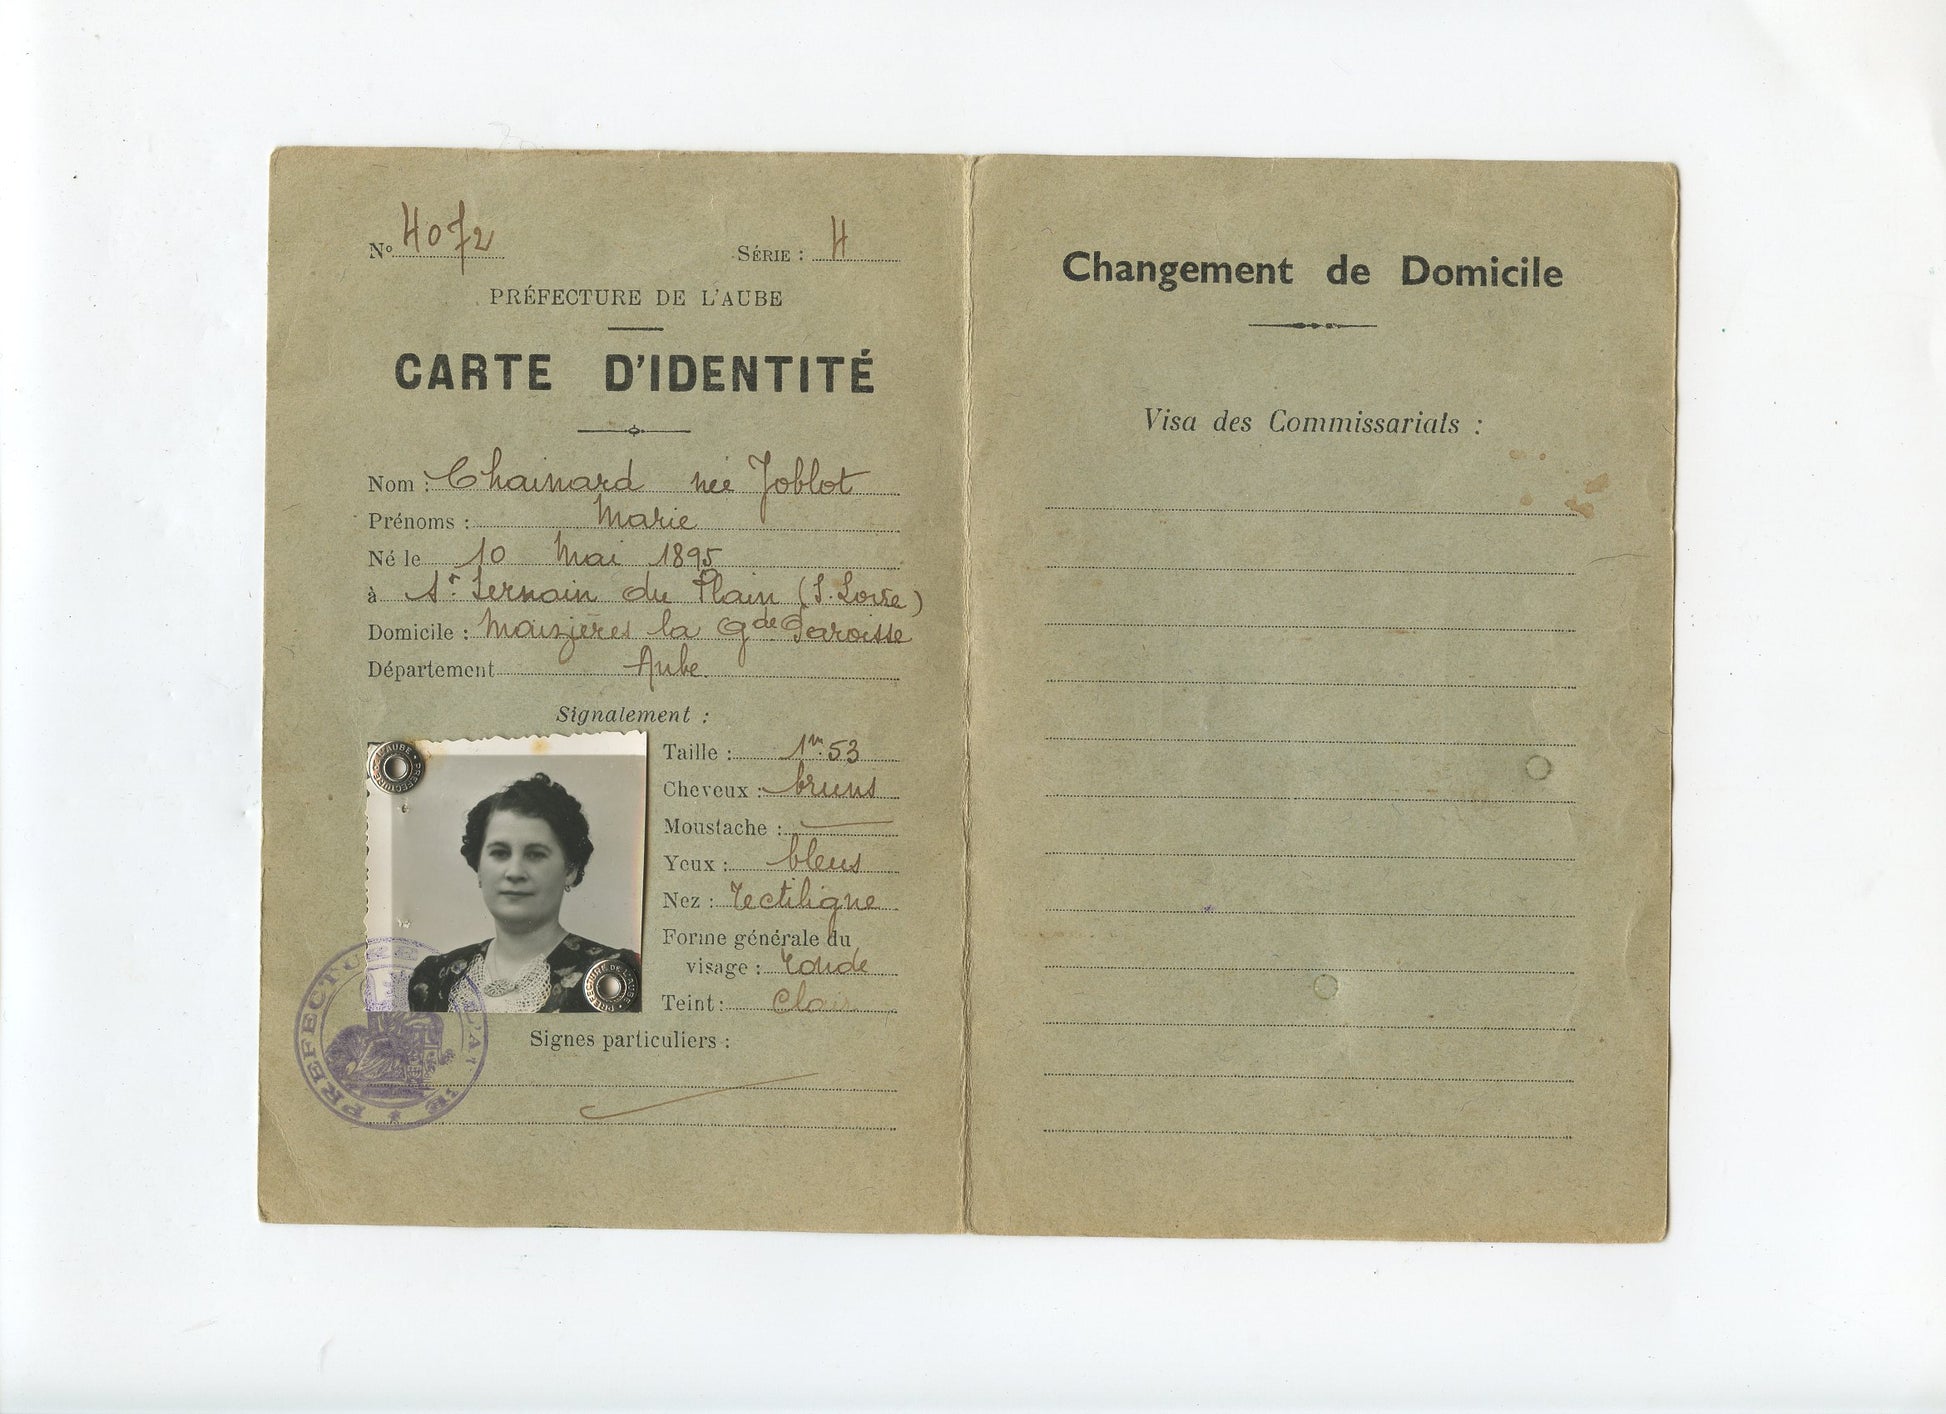 Nº 4072 SÉRIE : H
PRÉFECTURE DE L'AUBE
CARTE D'IDENTITÉ
Nom : Chainard née Joblot
Prénoms : Marie
Né le 10 Mai 1895
à St Sernain du Plain (S. Loire)
Domicile : Maizières la Gde Paroisse
Département Aube
Signalement :
Taille : 1m53
Cheveux : bruns
Moustache :
Yeux : bleus
Nez : rectiligne
Forme générale du
visage : ronde
Teint : Clair
Signes particuliers :
PRÉFECTURE DE L'AUBE
PRÉFECTURE DE L'AUBE
PREFECTURE
Changement de Domicile
Visa des Commissariats :